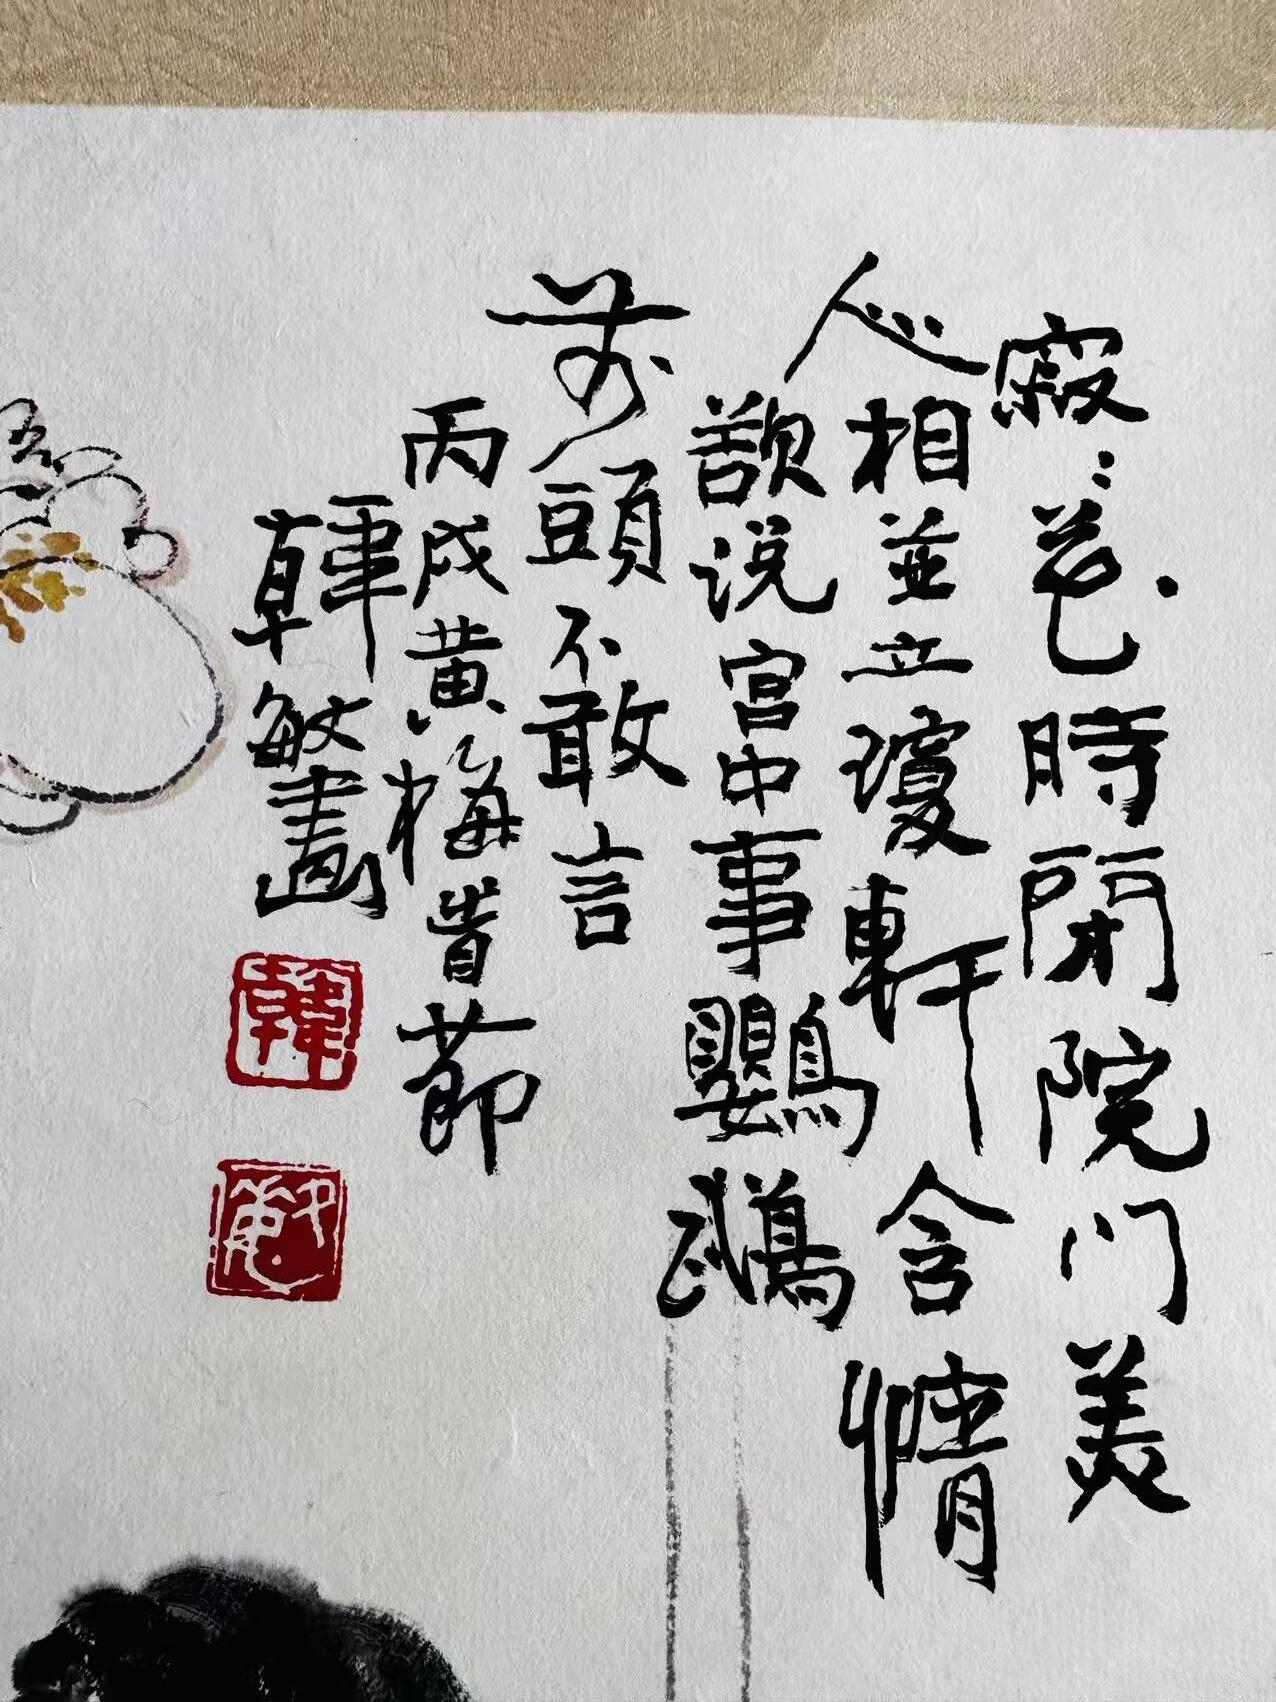 寂〻花時閉院门美
人相並立瓊軒含情
欲说宫中事鸚鵡
前頭不敢言
丙戌黄梅旹節
韓敏畫
韓
敏